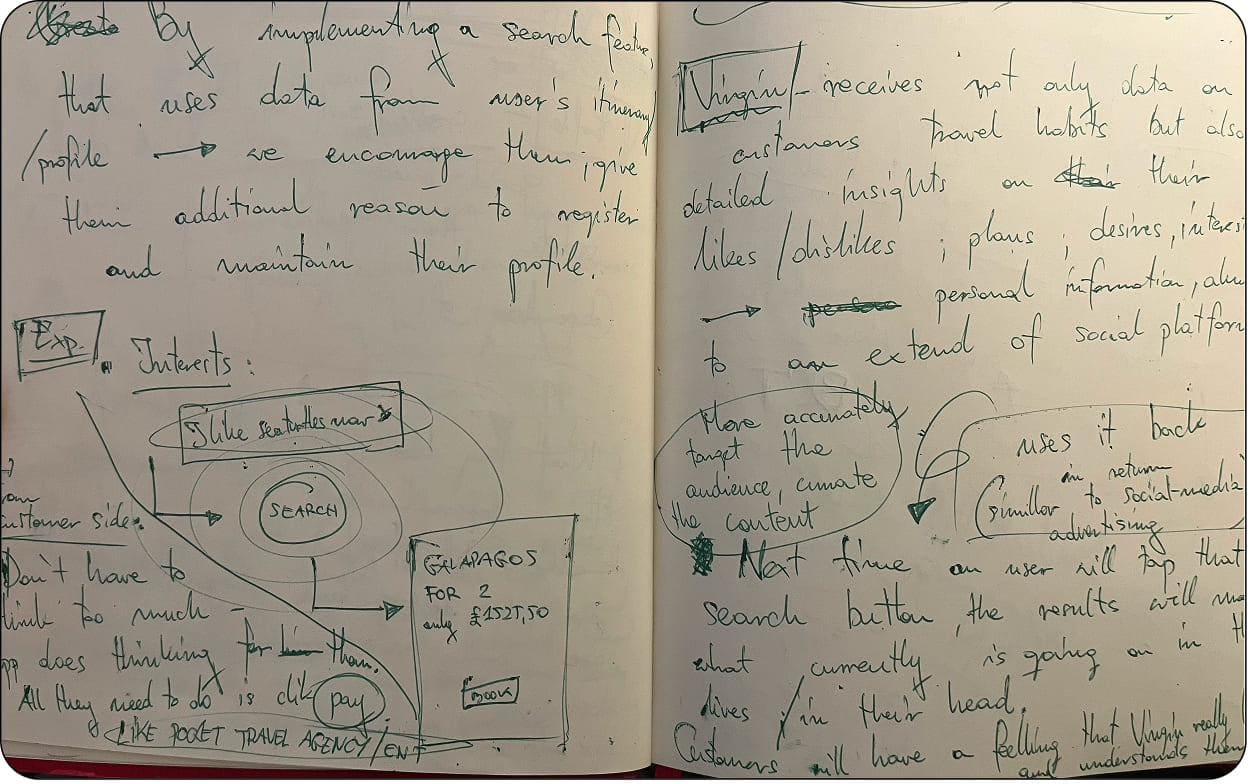 By implementing a search feature,
that uses data from user's itinerary
/profile → we encourage them, give
them additional reason to register
and maintain their profile.
Exp.
Interests:
I like seaturtles now
SEARCH
customer side:
Don't have to
think too much -
app does thinking for them.
All they need to do is clik pay
LIKE POCKET TRAVEL AGENCY/ENT
GALAPAGOS
FOR 2
only £1527,50
BOOK
Virgin - receives not only data on
custamers travel habits but also
detailed insights on their
likes/dislikes ; plans ; desires, interest
→ personal information,
to an extend of social platform
More accurately
target the
audience, curate
the content
uses it back
in return
(simillar to social-media
advertising
Next time an user will tap that
search button, the results will
what currently is going on in
lives / in their head.
Customers will have a feelling that Virgin really
and understands them